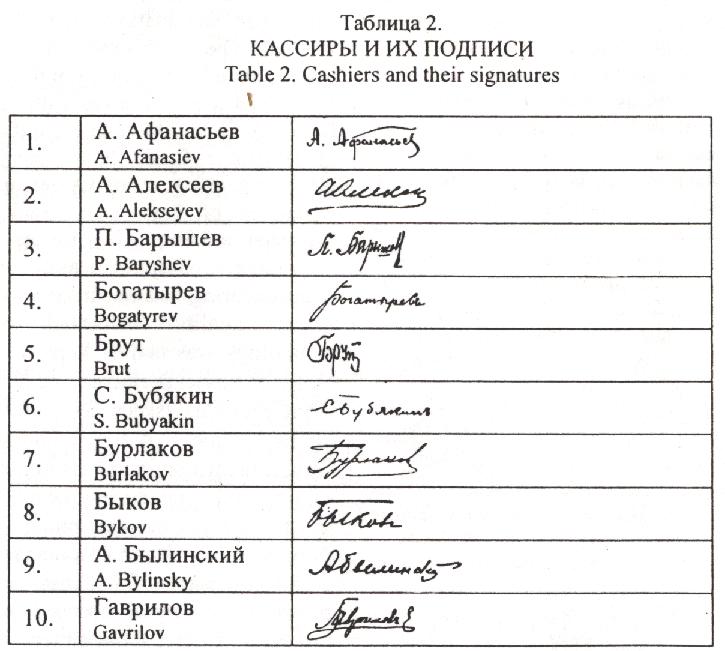 Таблица 2.
КАССИРЫ И ИХ ПОДПИСИ
Table 2. Cashiers and their signatures
1. А. Афанасьев А. Афанасьев
A. Afanasiev
2. А. Алексеев
A. Alekseyev
3. П. Барышев П. Барышев
P. Baryshev
4. Богатырев Богатыревъ
Bogatyrev
5. Брут Брут
Brut
6. С. Бубякин СБубякинъ
S. Bubyakin
7. Бурлаков Бурлаков
Burlakov
8. Быков Быковъ
Bykov
9. А. Былинский
A. Bylinsky
10. Гаврилов
Gavrilov